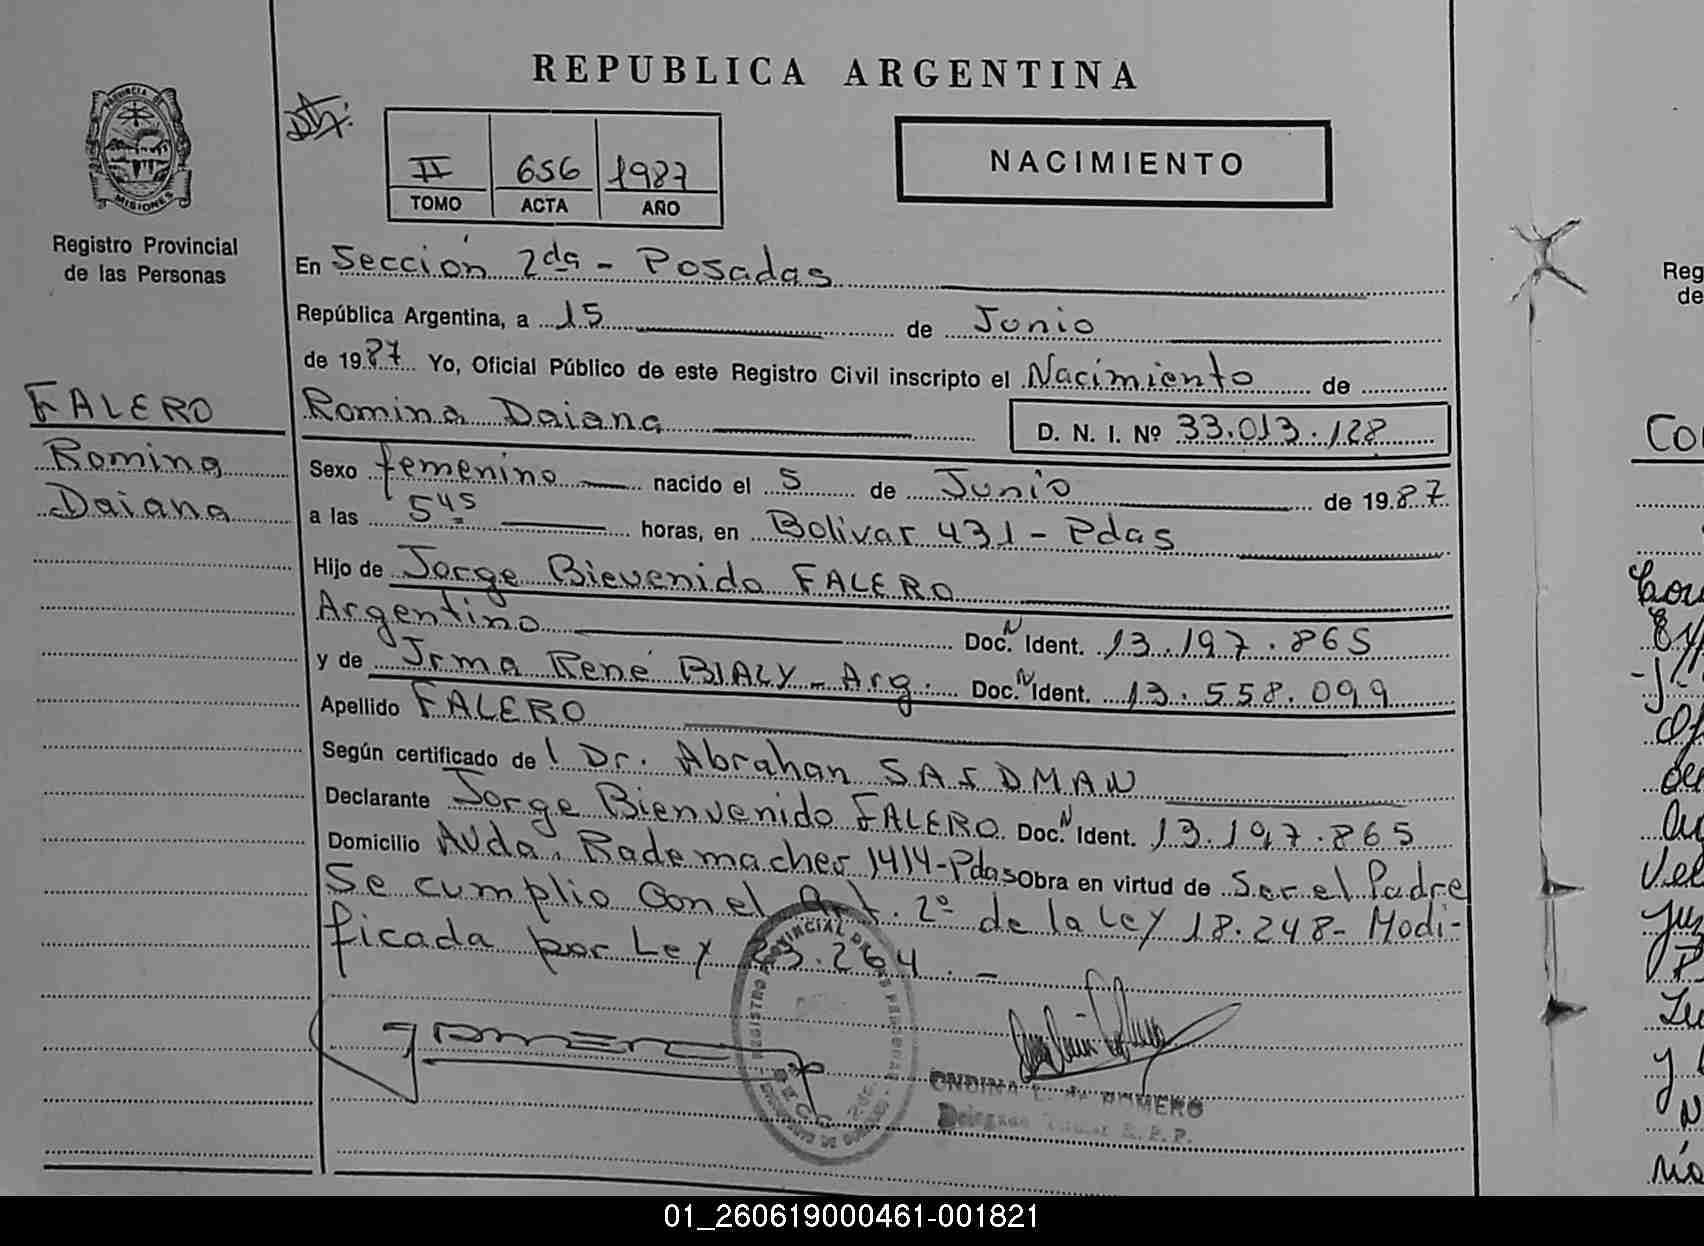 REPUBLICA ARGENTINA
PROVINCIA DE
MISIONES
Registro Provincial
de las Personas
II 656 1987
TOMO ACTA AÑO
NACIMIENTO
En Sección 2da - Posadas
República Argentina, a 15 de Junio
de 1987 Yo, Oficial Público de este Registro Civil inscripto el Nacimiento de
Romina Daiana
D. N. I. Nº 33.013.128
FALERO
Romina
Daiana
Sexo femenino nacido el 5 de Junio de 1987
a las 5 45 horas, en Bolivar 431 - Pdas
Hijo de Jorge Bievenido FALERO
Argentino Doc. N Ident. 13.197.865
y de Irma René BIALY - Arg. Doc. N Ident. 13.558.099
Apellido FALERO
Según certificado de l Dr. Abrahan SAIDMAN
Declarante Jorge Bienvenido FALERO Doc. N Ident. 13.197.865
Domicilio Avda. Rademacher 1414-Pdas Obra en virtud de Ser el Padre
Se cumplio con el Art. 2º de la Ley 18.248 - Modi-
ficada por Ley 23.264. -
REGISTRO PROVINCIAL DE LAS PERSONAS
ONDINA de ROMERO
Delegado Titular R. P. P.
Reg
de
Co
01_260619000461-001821